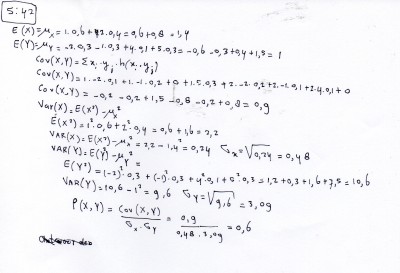 5:42
E(X)=μx = 1.0,6+2.0,4=0,6+0,8=1,4
E(Y)=μy = -2.0,3-1.0,3+4.0,1+5.0,3=-0,6-0,3+0,4+1,5=1
Cov(X,Y)=Σxi.yj.h(xi,yj)
Cov(X,Y)=1.-2.0,1+1.-1.0,2+0+1.5.0,3+2.-2.0,2+2.-1.0,1+2.4.0,1+0
Cov(X,Y)=-0,2-0,2+1,5-0,8-0,2+0,8=0,9
Var(X)=E(X²)-μx²
E(X²)=1².0,6+2².0,4=0,6+1,6=2,2
VAR(X)=E(X²)-μx²=2,2-1,4²=0,24 σx=√0,24=0,48
VAR(Y)=E(Y²)-μy²=
E(Y²)=(-2)².0,3+(-1)².0,3+4².0,1+5².0,3=1,2+0,3+1,6+7,5=10,6
VAR(Y)=10,6-1²=9,6 σy=√9,6=3,09
ρ(X,Y)=Cov(X,Y)/σx.σy=0,9/0,48.3,09=0,6